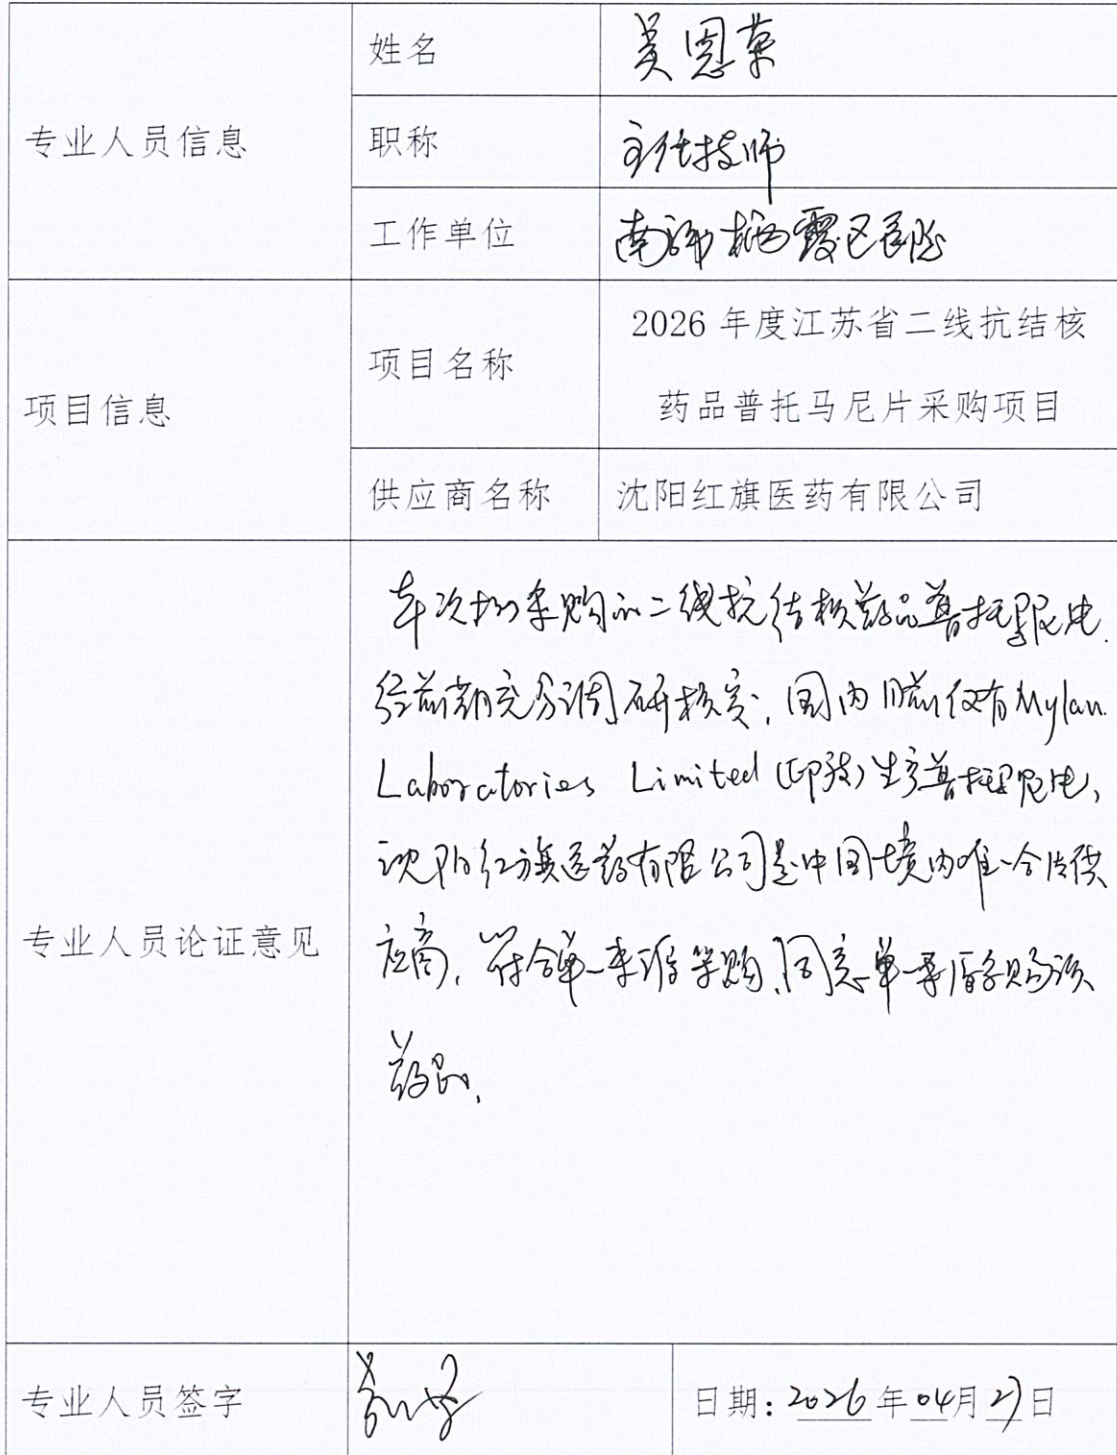 专业人员信息
姓名
吴恩荣
职称
主任技师
工作单位
南京市栖霞区医院
项目信息
项目名称
2026 年度江苏省二线抗结核
药品普托马尼片采购项目
供应商名称
沈阳红旗医药有限公司
专业人员论证意见
本次拟采购的二线抗结核药品普托马尼片,
经前期充分调研核实,国内目前仅有Mylan
Laboratories Limited (印度)生产普托马尼片,
沈阳红旗医药有限公司是中国境内唯一合法供
应商,符合单一来源采购,同意单一来源采购该
药品.
专业人员签字
日期: 2026年04月27日